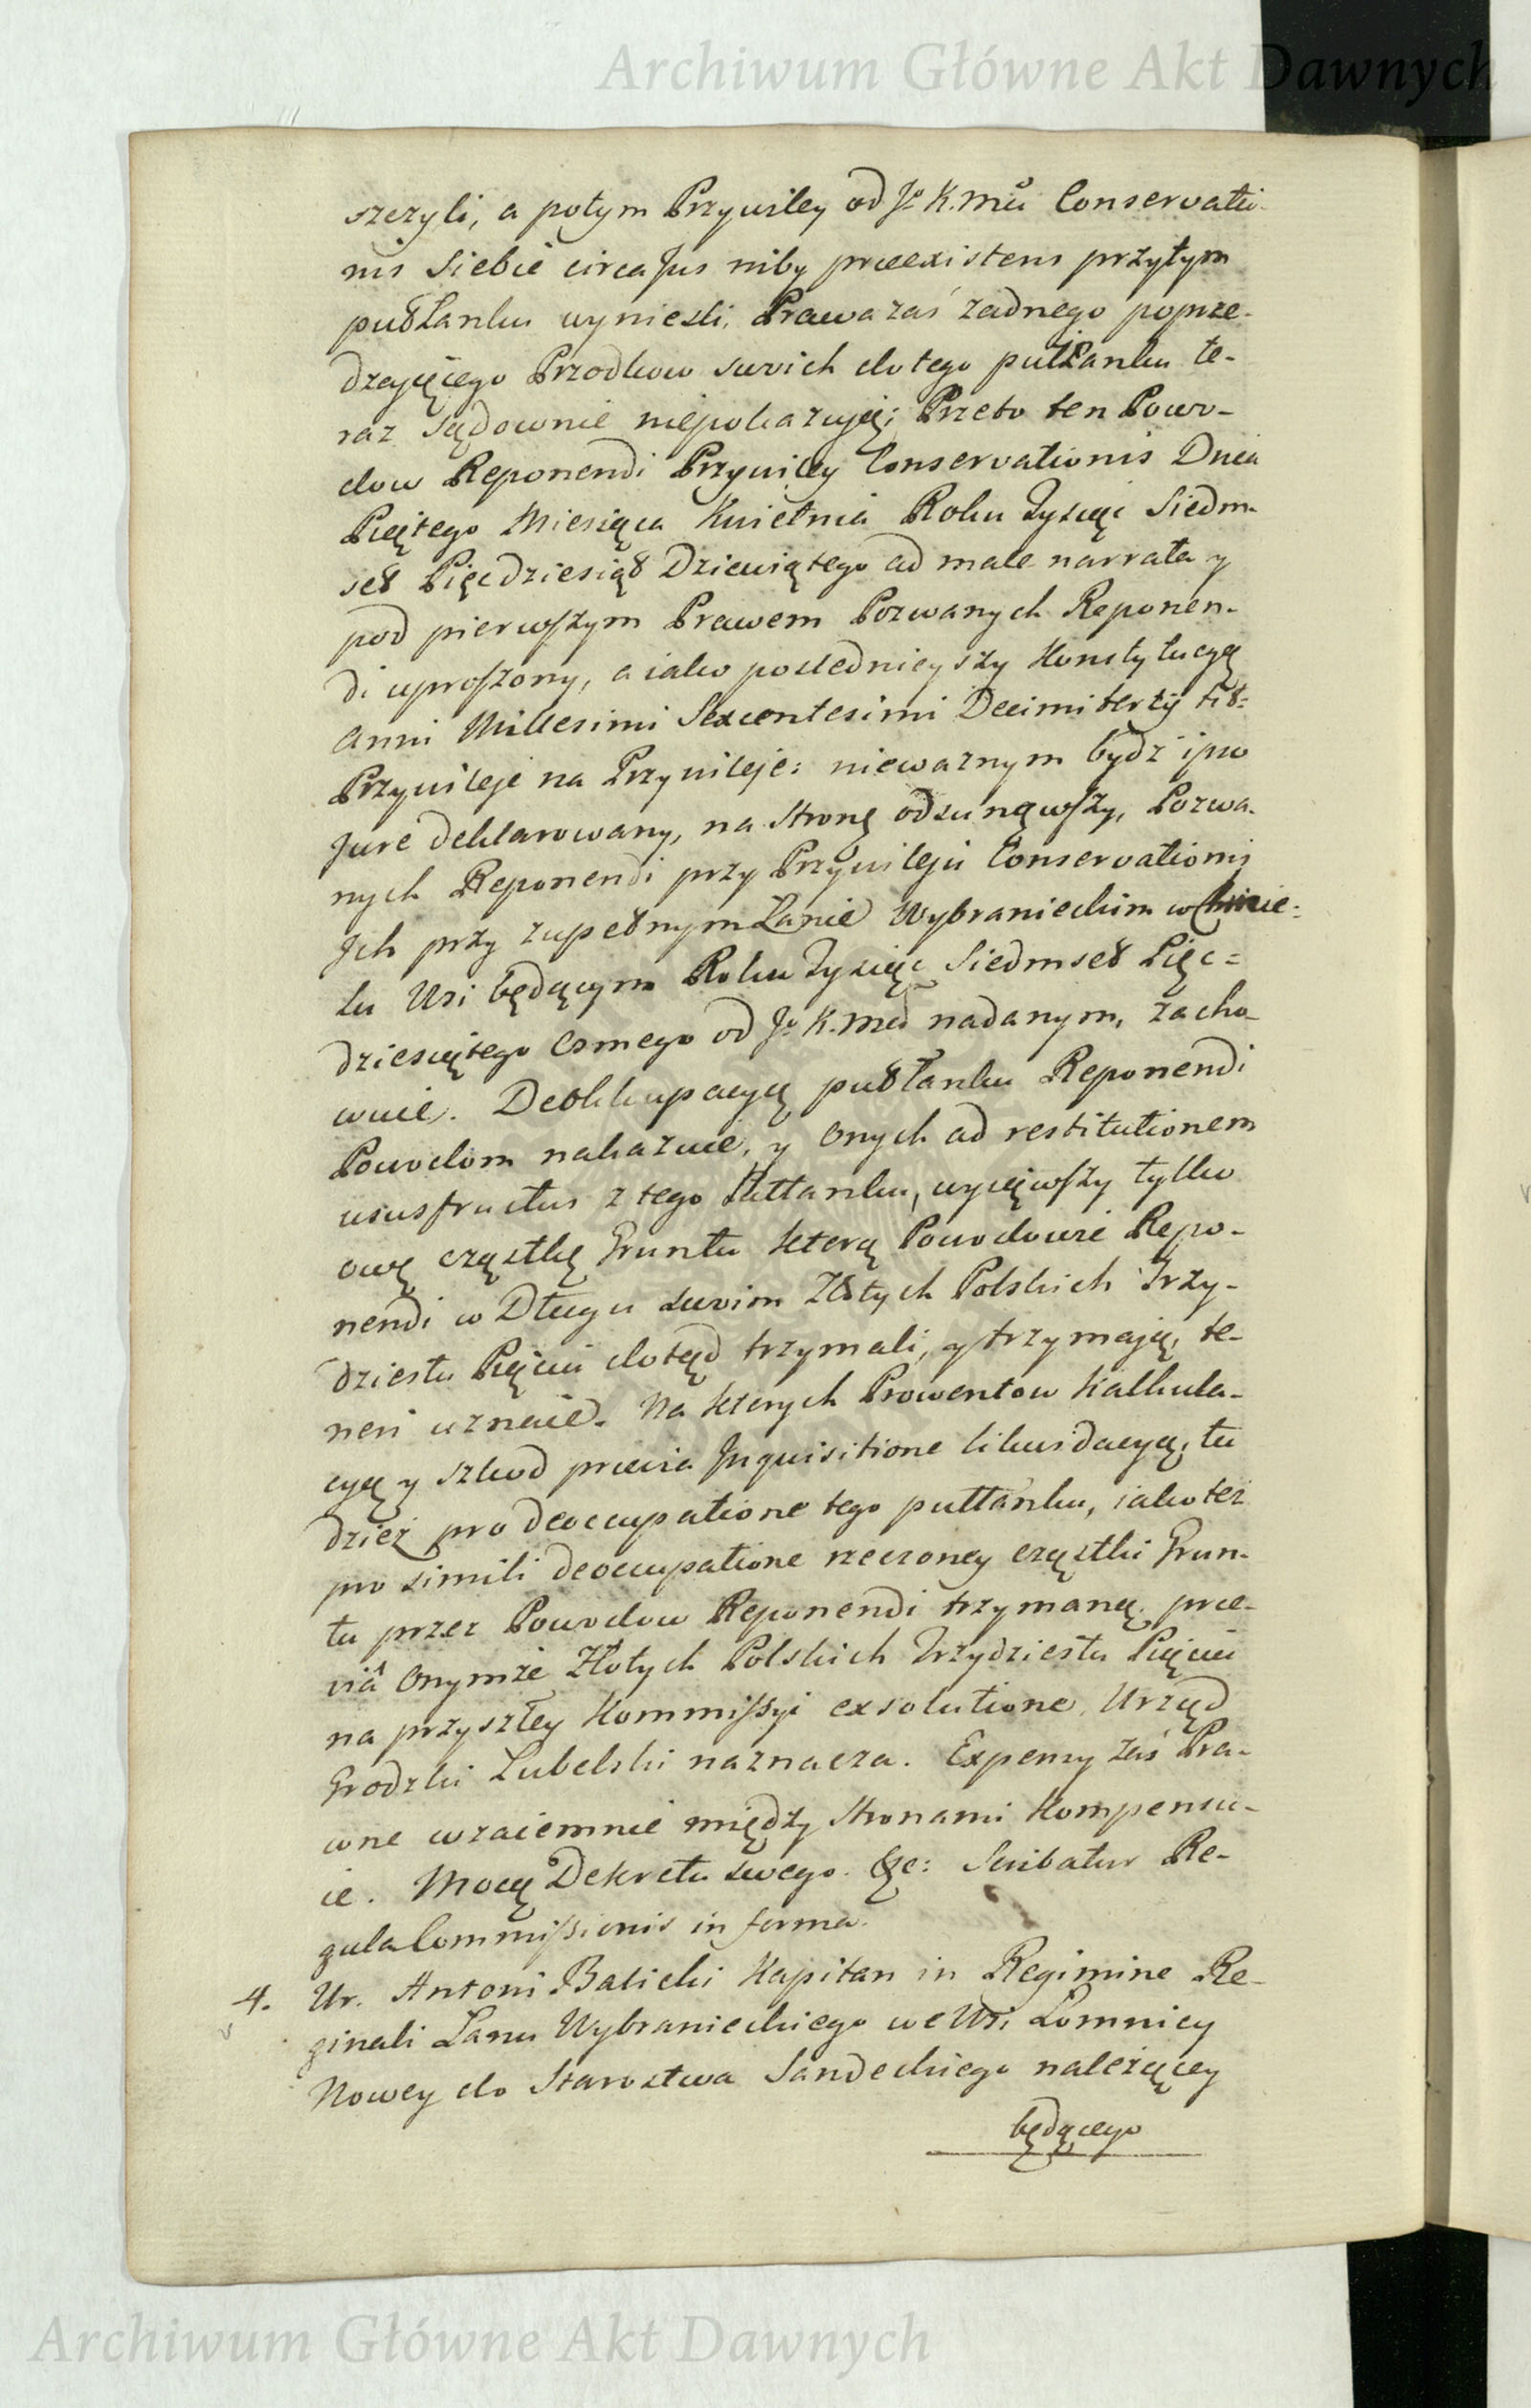 Archiwum Główne Akt Dawnych
szczyli, a potym Przywiley od Jº K. Mci Conservatio-
nis siebie circa Jus niby praeexistens przytym
pułłanku wynieśli, Prawa zaś żadnego poprze-
dzaiącego Przodkow swoich do tego pułłanku te-
raz sądownie niepokazuią; Przeto ten Powo-
dow Reponendi Przywiley Conservationis Dnia
Piątego Miesiąca Kwietnia Roku Tysiąc Siedm-
set Pięcdziesiąt Dziewiątego ad male narrata y
pod pierwszym Prawem Pozwanych Reponen-
di uproszony, a iako poslednieyszy Konstytucyą
Anni Millesimi Sexcentesimi Decimi tertij tit:
Przywileje na Przywileje: nieważnym bydź ipso
Jure deklarowany, na stronę odsunąwszy, Pozwa-
nych Reponendi przy Przywileju Conservationis
Jch przy zupełnym Łanie Wybranieckim w
ku Wsi będącym Roku Tysiąc Siedmset Pięc=
dziesiątego osmego od Jº K. Mci nadanym, zacho-
wuie. Deokkupacyą pułłanku Reponendi
Powodom nakazuie, y onych ad restitutionem
ususfructus z tego Pułłanku, wyiąwszy tylko
owę cząstkę Gruntu którą Powodowie Repo-
nendi w Długu swoim Złotych Polskich Trzy-
dziestu Pięciu dotąd trzymali, y trzymają, te-
neri uznaie. Na których Prowentow kalkula-
cyą y szkod praevia Inquisitione likwidacyą, tu
dzież pro deoccupatione tego pułłanku, iako też
pro simili deoccupatione rzeczoney cząstki Grun-
tu przez Powodow Reponendi trzymaną, prae-
viâ onymże Złotych Polskich Trzydziestu Pięciu
na przyszłey Kommissyi exsolutione, Urząd
Grodzki Lubelski naznacza. Expensy zaś Pra-
wne wzaiemnie między Stronami kompensu-
ie. Mocą Dekretu swego. &c: Scribatur Re-
gula Commissionis in forma.
4. Ur. Antoni Balicki Kapitan in Regimine Re-
ginali Łanu Wybranieckiego we Wsi Łomnicy
Nowey do Starostwa Sandeckiego należącey
będącego
Archiwum Główne Akt Dawnych